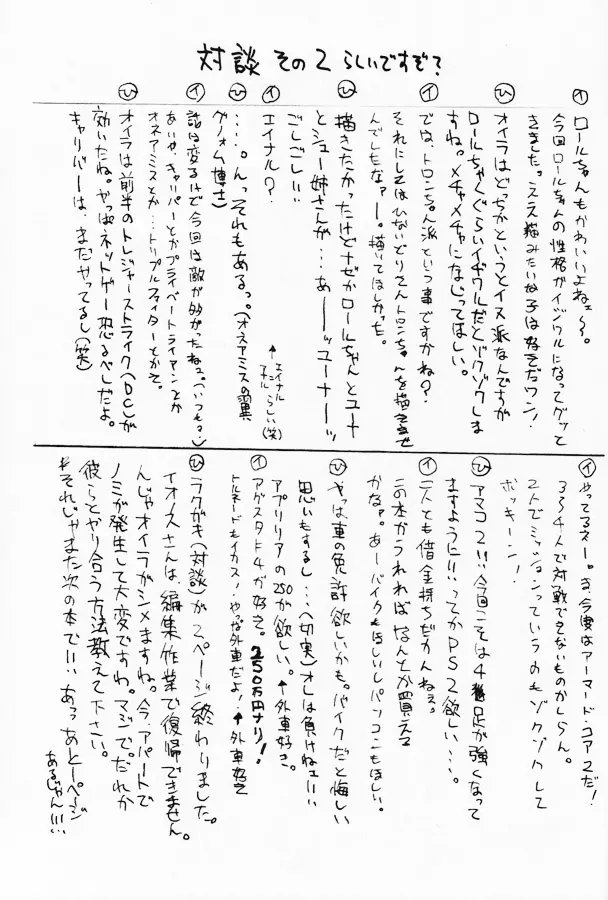 対談 その2 らしいですぞ?
イ ロールちゃんもかわいいよねェ〜〜。
今回ロールちゃんの性格がイジワルになってグッと
きました。ええ踏みたいな子は好きだワン!
ひ オイラはどっちかというとイヌ派なんですが
ロールちゃんぐらいイヂワルだとゾクゾクしま
すね。メチャメチャにないってほしい。
イ では、トロンちゃん派という事ですかね?
それにしてはひないどりさんトロンちゃんを描きませ
んでしたなァー。描いてほしかった。
ひ 描きたかったけどナゼかロールちゃんとユーナ
とシュー姉さんが…あ———ッユーナ——ッ
ごしごし!!
イ エイナル?
←エイナル
らしい(笑)
ひ ‥‥。んっそれもあるっ。(オネアミスの翼
グノォム博士)
イ 話は変るけど今回は敵が多かったねっ。(いつも?)
あいや、キャリバーとかプライベートライアンとか
オネアミスとか…トリプルファイターとかで。
ひ オイラは前半のトレジャーストライク(DC)が
効いたね。やっぱネットゲー恐るべしだよ。
キャリバーは、まだやってるし(笑)
イ やってるネー。お、今度はアーマード・コア2だ!
3〜4人で対戦できないものかしらん。
2人でミッションっていうのもゾクゾクして
ボッキーン!
ひ アマコア2!!今回こそは4脚足が強くなって
ますように!!ってかPS2欲しい…。
イ 二人とも借金持ちだかんねえ。
この本がうれればなんとか買える
かなァ。あーバイクもほしいしパソコンもほしい。
ひ やっぱ車の免許欲しいかも。バイクだと悔しい
思いもするし…(切実)オレは負けねェ!!
アプリリアの250が欲しい。←外車好き。
イ アグスタF4が好き。250万円ナリ!
トルネードもイカス!やな外車だよ!←外車好き
ひ ラクガキ(対談)が2ページ終わりました。
イオノスさんは編集作業で復帰できません。
んじゃオイラがシメますね。今、アパートで
ノミが発生して大変ですね。マジで。だれか
彼らとやり合う方法教えて下さい。
それじゃまた次の本で!!あっあと一ページ
あるじゃん!!!